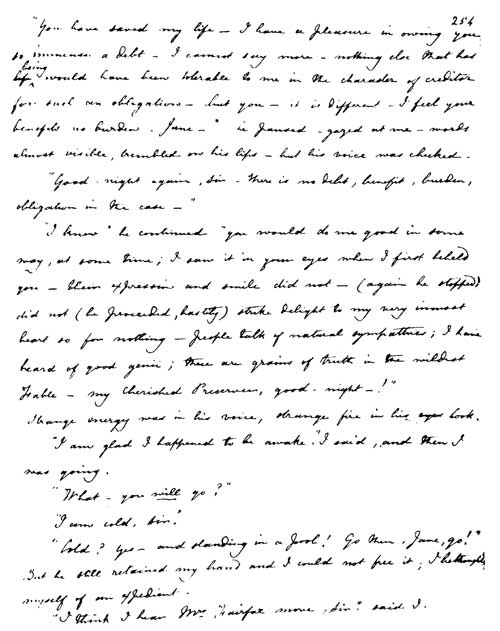 254
"You have saved my life – I have a pleasure in owing you
so immense a debt – I cannot say more – nothing else that has
being
life would have been tolerable to me in the character of creditor
for such an obligation – but you – it is different – I feel your
benefits no burden, Jane –" he paused – gazed at me – words
almost visible, trembled on his lips – but his voice was checked –
"Good-night again, sir – there is no debt, benefit, burden,
obligation in the case –"
"I knew" he continued "you would do me good in some
way, at some time; I saw it in your eyes when I first beheld
you – their expression and smile did not – (again he stopped)
did not (he proceeded, hastily) strike delight to my very inmost
heart so for nothing – people talk of natural sympathies; I have
heard of good genii; there are grains of truth in the wildest
fable – my cherished Preserver, good-night –!"
Strange energy was in his voice, strange fire in his eyes look.
"I am glad I happened to be awake" I said, and then I
was going.
"What – you will go?"
"I am cold, sir."
"Cold? yes – and standing in a pool! Go then, Jane, go!"
But he still retained my hand and I could not free it; I bethought
myself of an expedient.
"I think I hear Mrs Fairfax move, sir" said I.